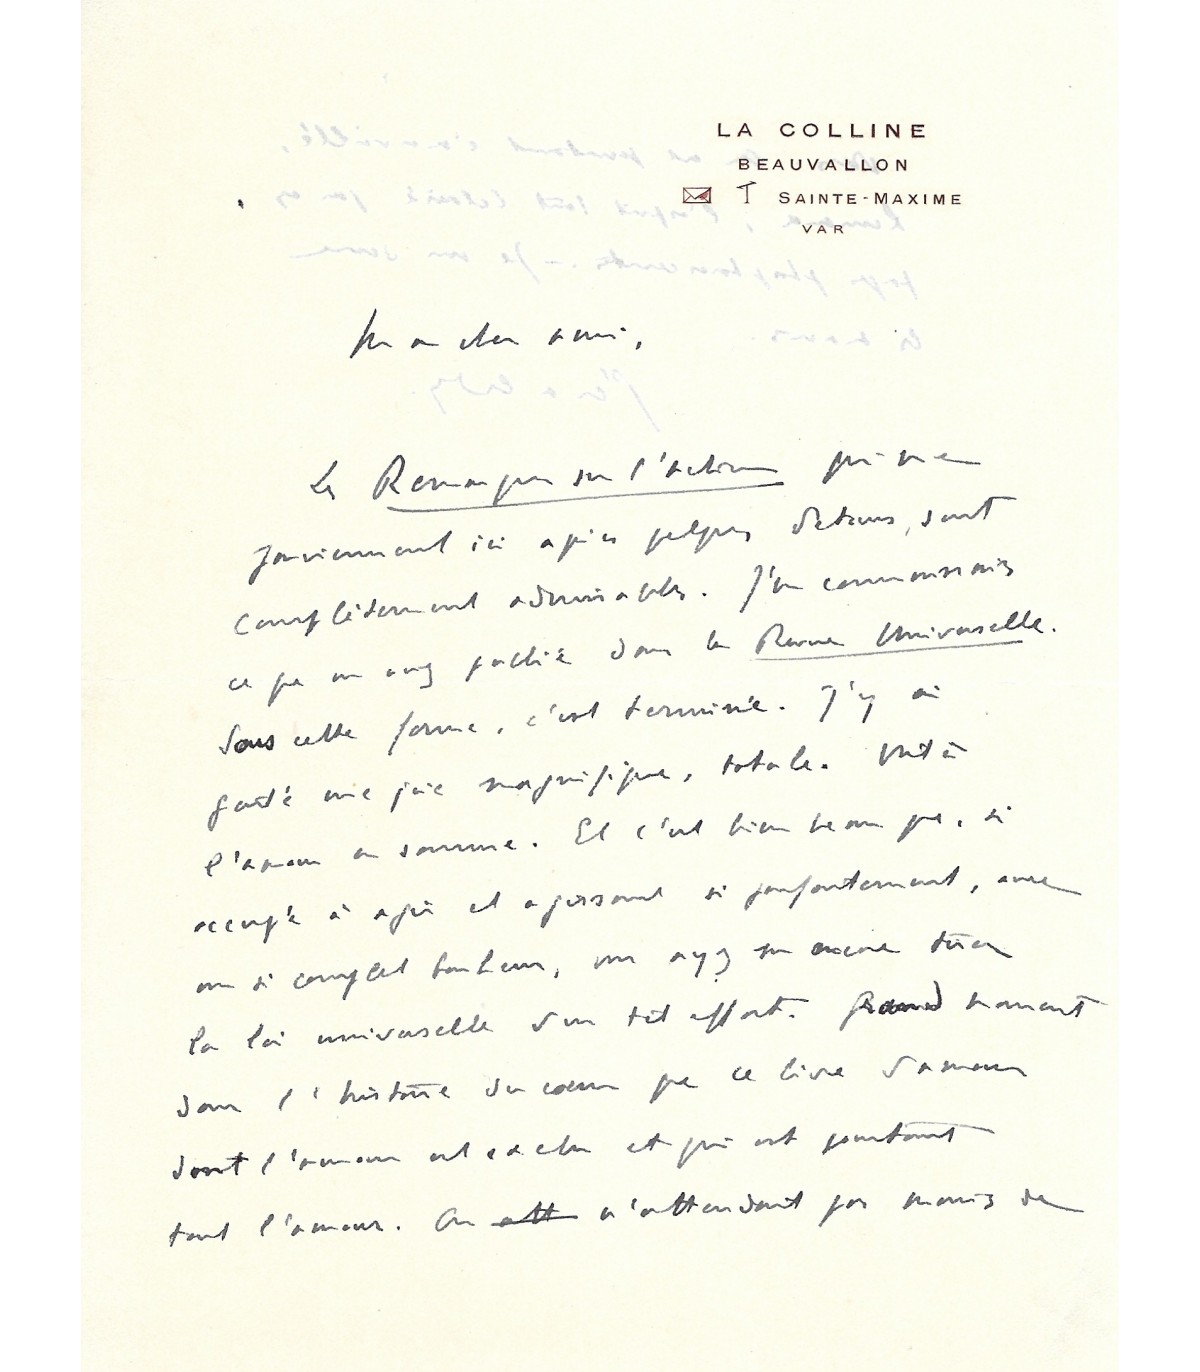 LA COLLINE
BEAUVALLON
SAINTE-MAXIME
VAR
Mon cher ami,
Les Remarques sur l'action qui ne me
parviennent ici après quelques détours, sont
complètement admirables. J'en connaissais
ce que vous avez publié dans la Revue Universelle.
Sous cette forme, c'est terminé. J'y ai
goûté une joie magnifique, totale. Voilà
l'amour en somme. Et c'est bien beau que, si
occupé à agir et agissant si parfaitement, avec
un si complet bonheur, vous ayez su encore tirer
la loi universelle d'un tel effort. Grand moment
dans l'histoire du cœur que ce livre d'amour
dont l'amour est exclu et qui est pourtant
tout l'amour. On att n'attendait pas moins de